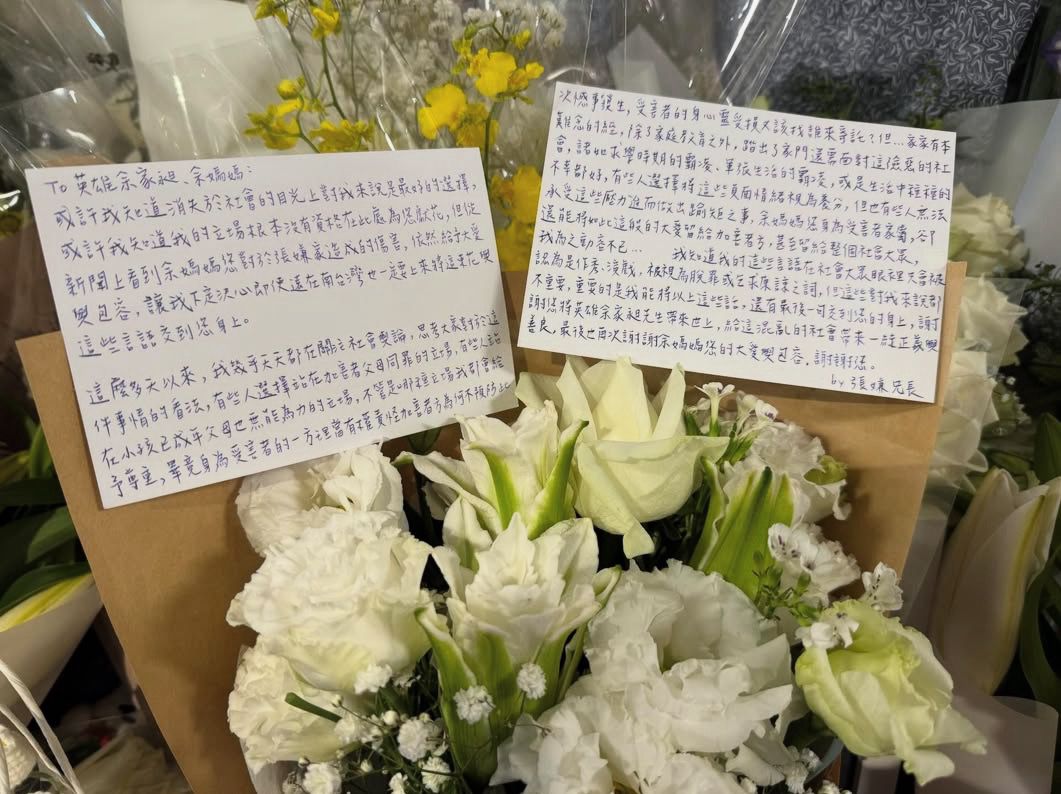 To 英雄余家昶、余媽媽：
或許我知道消失於社會的目光上對我來說是最好的選擇，
或許我知道我的立場根本沒有資格在此處為您獻花，但從
新聞上看到余媽媽您對於張嫌家造成的傷害，依然給予大愛
與包容，讓我下定決心即使遠在南台灣也一定要上來將這束花與
這些言語交到您身上。
這麼多天以來，我幾乎天天都在關注社會輿論，思考大家對於這
件事情的看法，有些人選擇站在加害者父母同罪的立場，有些人站
在小孩已成年父母也無能為力的立場，不管是哪種立場我都會給
予尊重，畢竟身為受害者的一方理當有權責怪加害方為何不預防此
次憾事發生，受害者的身心靈受損又該找誰來哭訴？但...家家有本
難念的經，除了家庭教育之外，踏出了家門還需面對這險惡的社
會，諸如求學時期的霸凌、軍旅生活的霸凌，或是生活中種種的
不幸都好，有些人選擇將這些負面情緒視為養分，但也有些人無法
承受這些壓力進而做出踰矩之事，余媽媽您身為受害者家屬，卻
還能將如此這般的大愛留給加害者方，甚至留給整個社會大眾，
我為之動容不已... 我知道我的這些言語在社會大眾眼裡又會被
認為是作秀、演戲，被視為脫罪或乞求原諒之詞，但這些對我來說都
不重要，重要的是我能將以上這些話，還有最後一句交到您的身上，謝
謝您將英雄余家昶先生帶來世上，給這混亂的社會帶來一絲正義與
善良，最後也再次謝謝余媽媽您的大愛與包容。謝謝您。
by 張嫌兄長